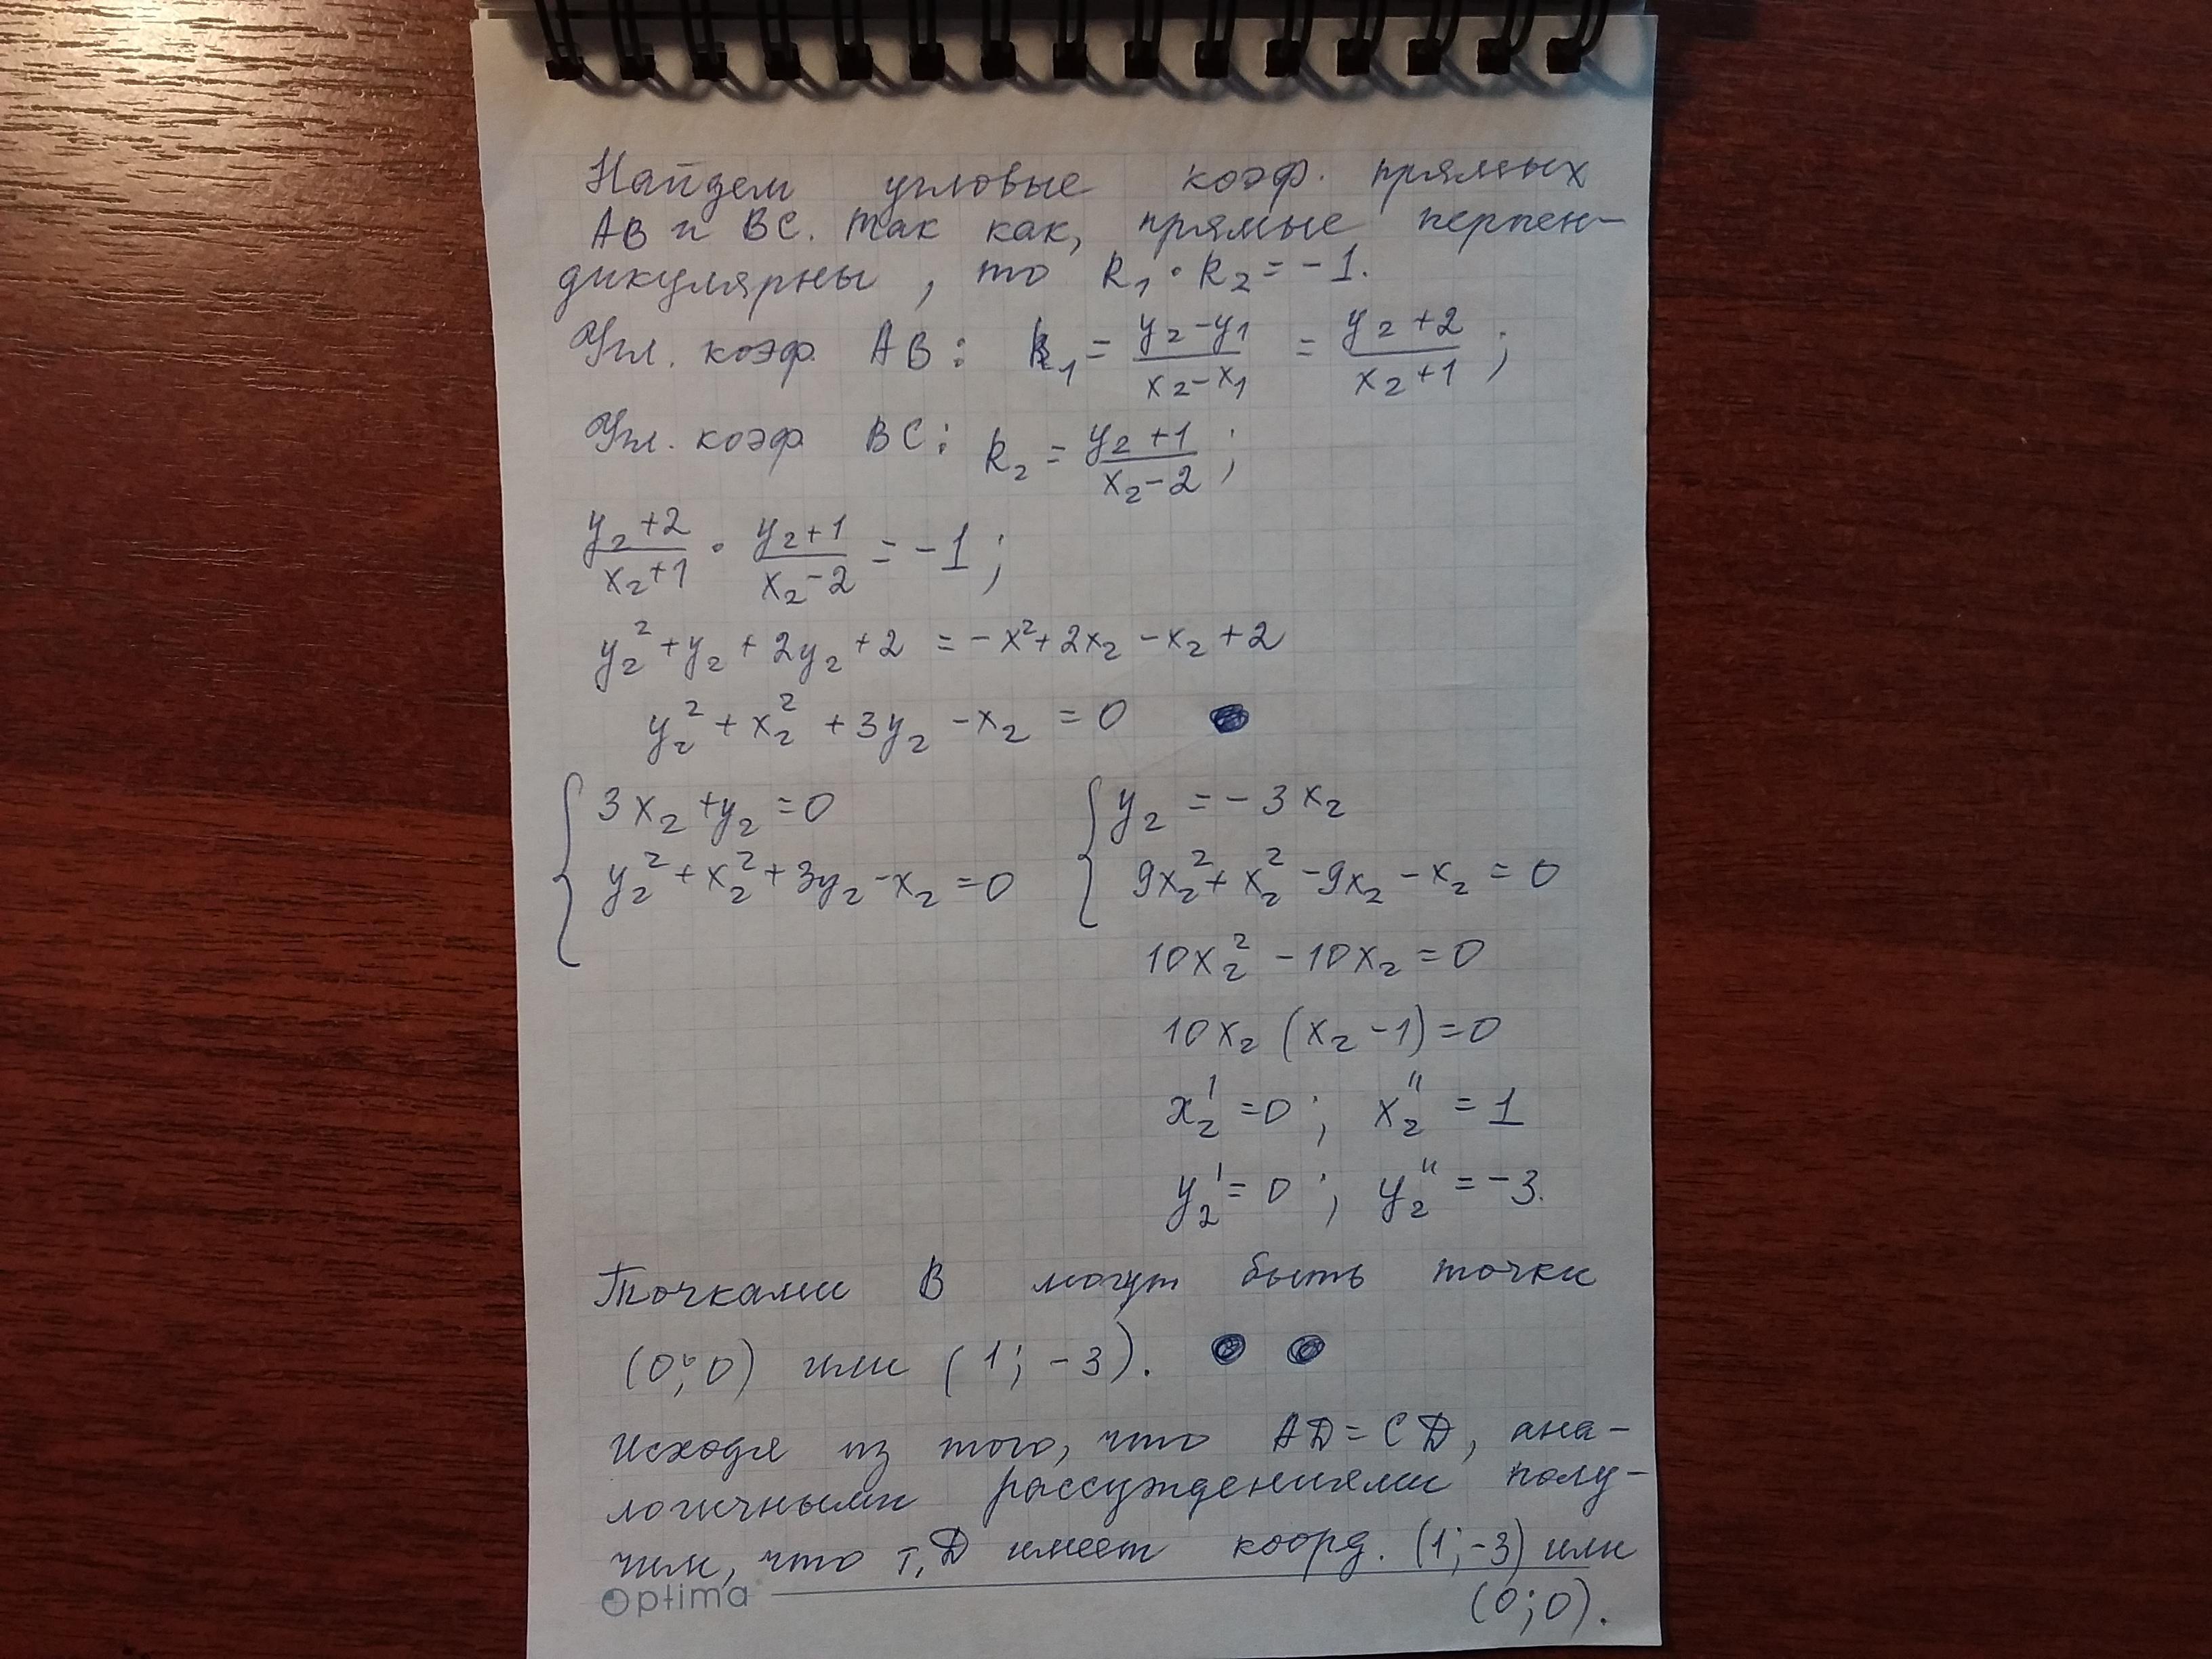 Найдем угловые коэф. прямых
АВ и ВС. Так как, прямые перпен-
дикулярны, то k₁·k₂=-1.
Угл. коэф. АВ: k₁ = (y₂-y₁)/(x₂-x₁) = (y₂+2)/(x₂+1);
Угл. коэф. ВС: k₂ = (y₂+1)/(x₂-2);
(y₂+2)/(x₂+1) · (y₂+1)/(x₂-2) = -1;
y₂²+y₂+2y₂+2 = -x²+2x₂-x₂+2
y₂²+x₂²+3y₂-x₂=0
{3x₂+y₂=0 {y₂=-3x₂
y₂²+x₂²+3y₂-x₂=0 9x₂²+x₂²-9x₂-x₂=0
10x₂²-10x₂=0
10x₂(x₂-1)=0
x₂'=0; x₂''=1
y₂'=0; y₂''=-3.
Точками В могут быть точки
(0;0) или (1;-3).
Исходя из того, что AD=CD, ана-
логичными рассуждениями полу-
чим, что т. D имеет коорд. (1;-3) или
(0;0).
Optima